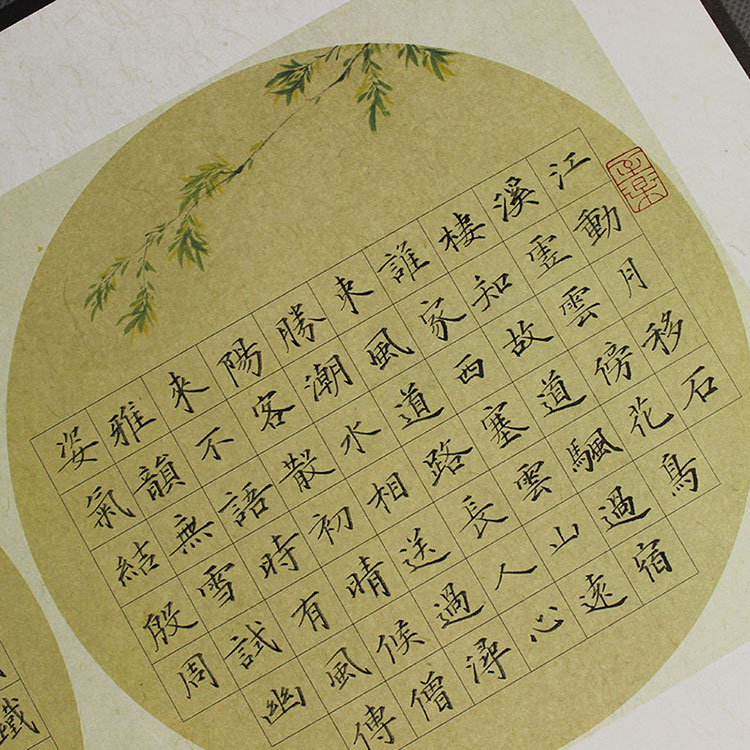 江動月移石
溪虛雲傍花鳥
棲知故道颿過宿
誰家西塞雲山遠
東風道路長人心
勝潮水相送過潯
陽客散初晴候僧
來不語時有風傳
雅韻無雪試幽
姿氣結殷周
鐵